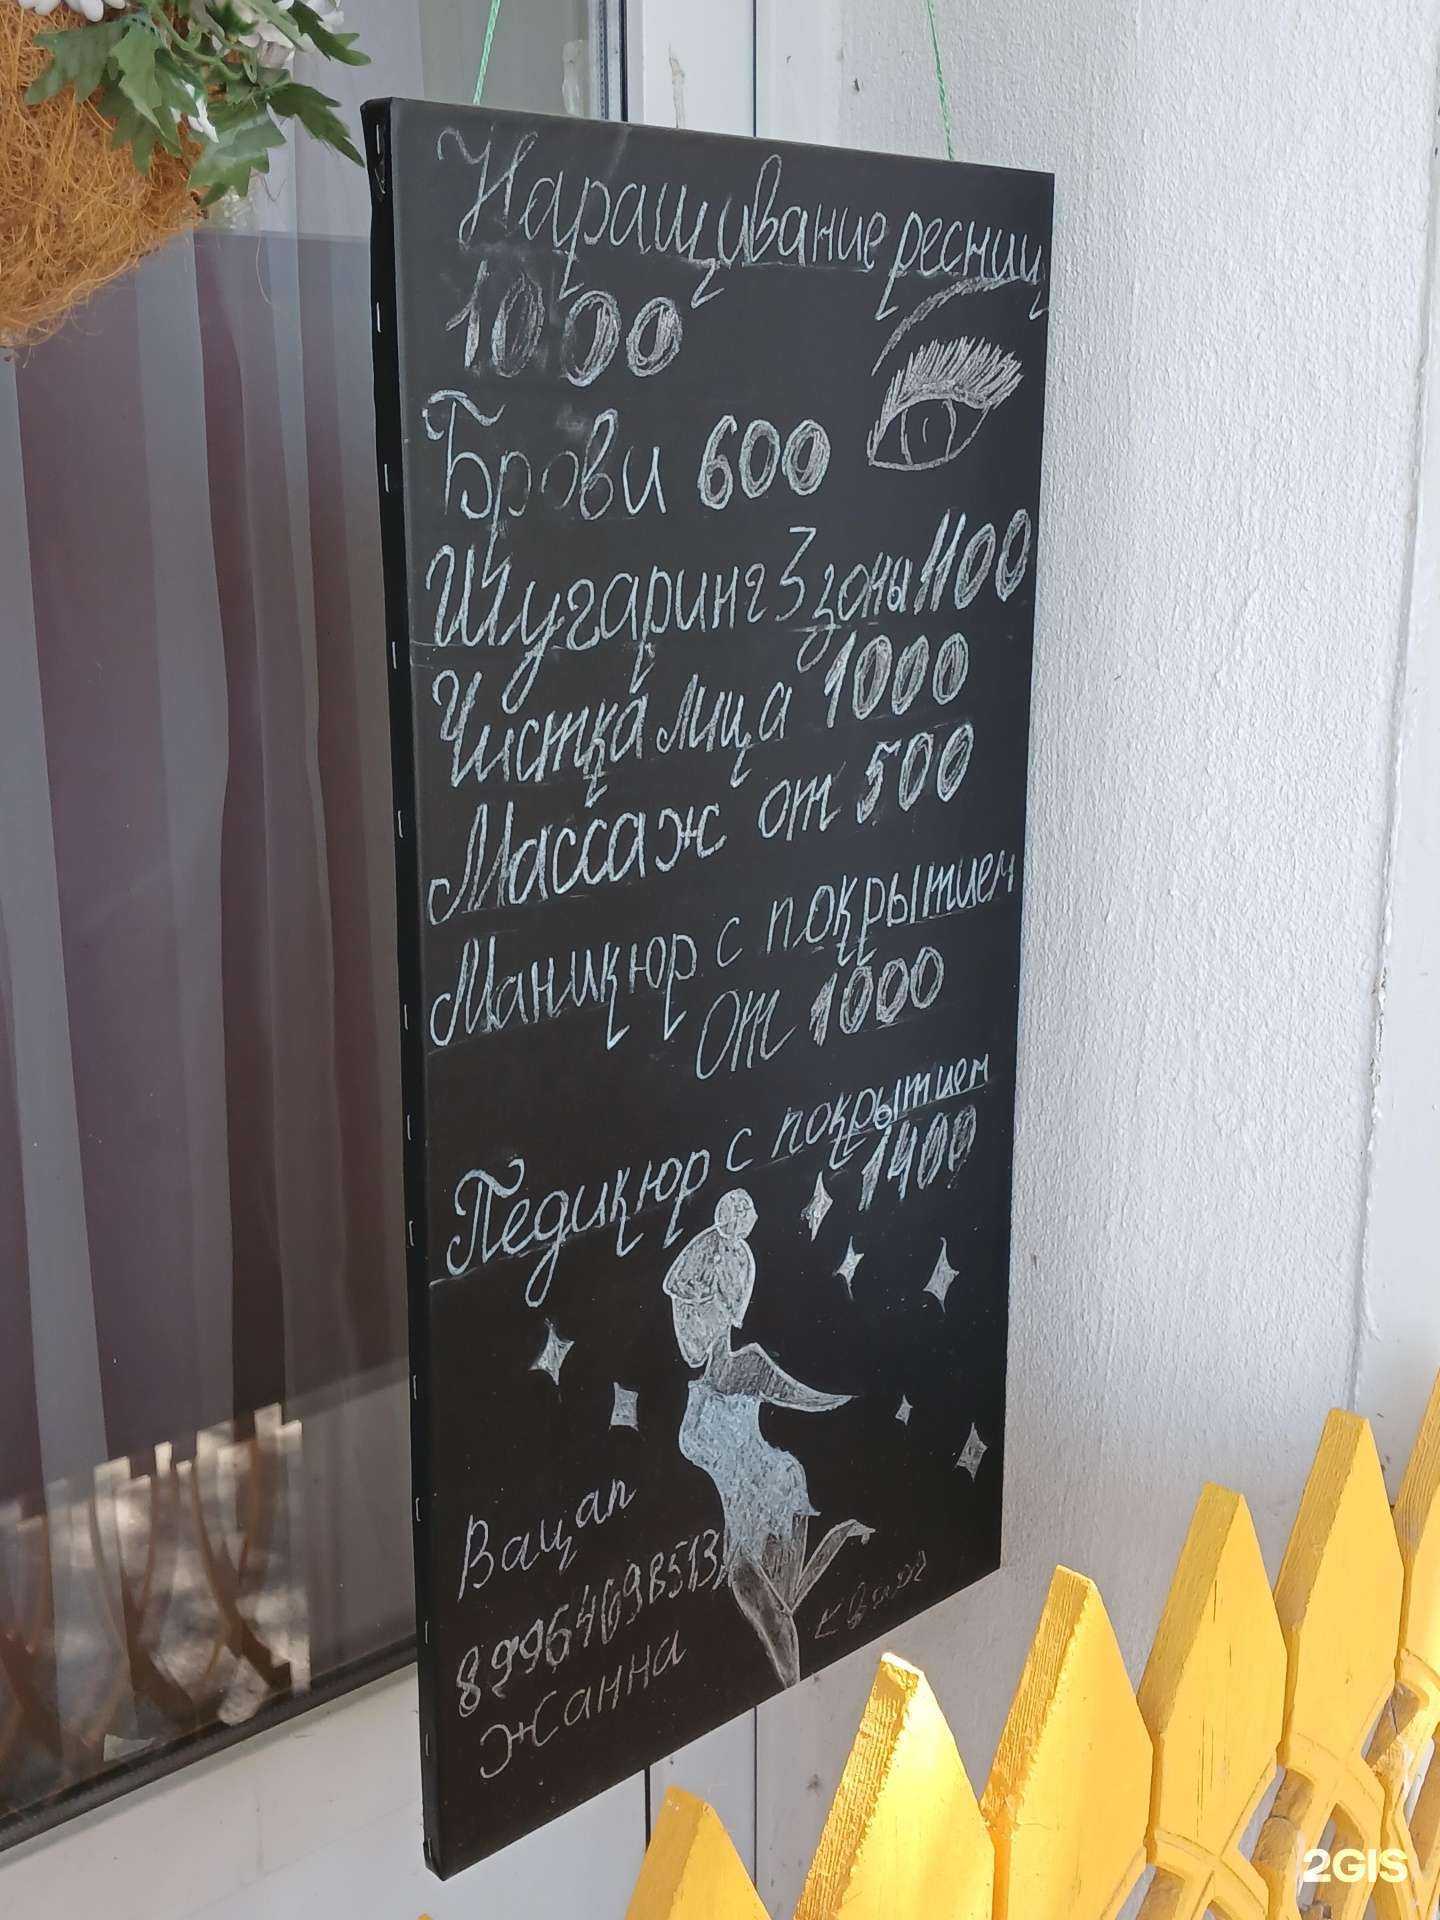 Наращивание ресниц
1000
Брови 600
Шугаринг 3 зоны 1100
Чистка лица 1000
Массаж от 500
Маникюр с покрытием
от 1000
Педикюр с покрытием
1400
Вацап
Жанна
2GIS